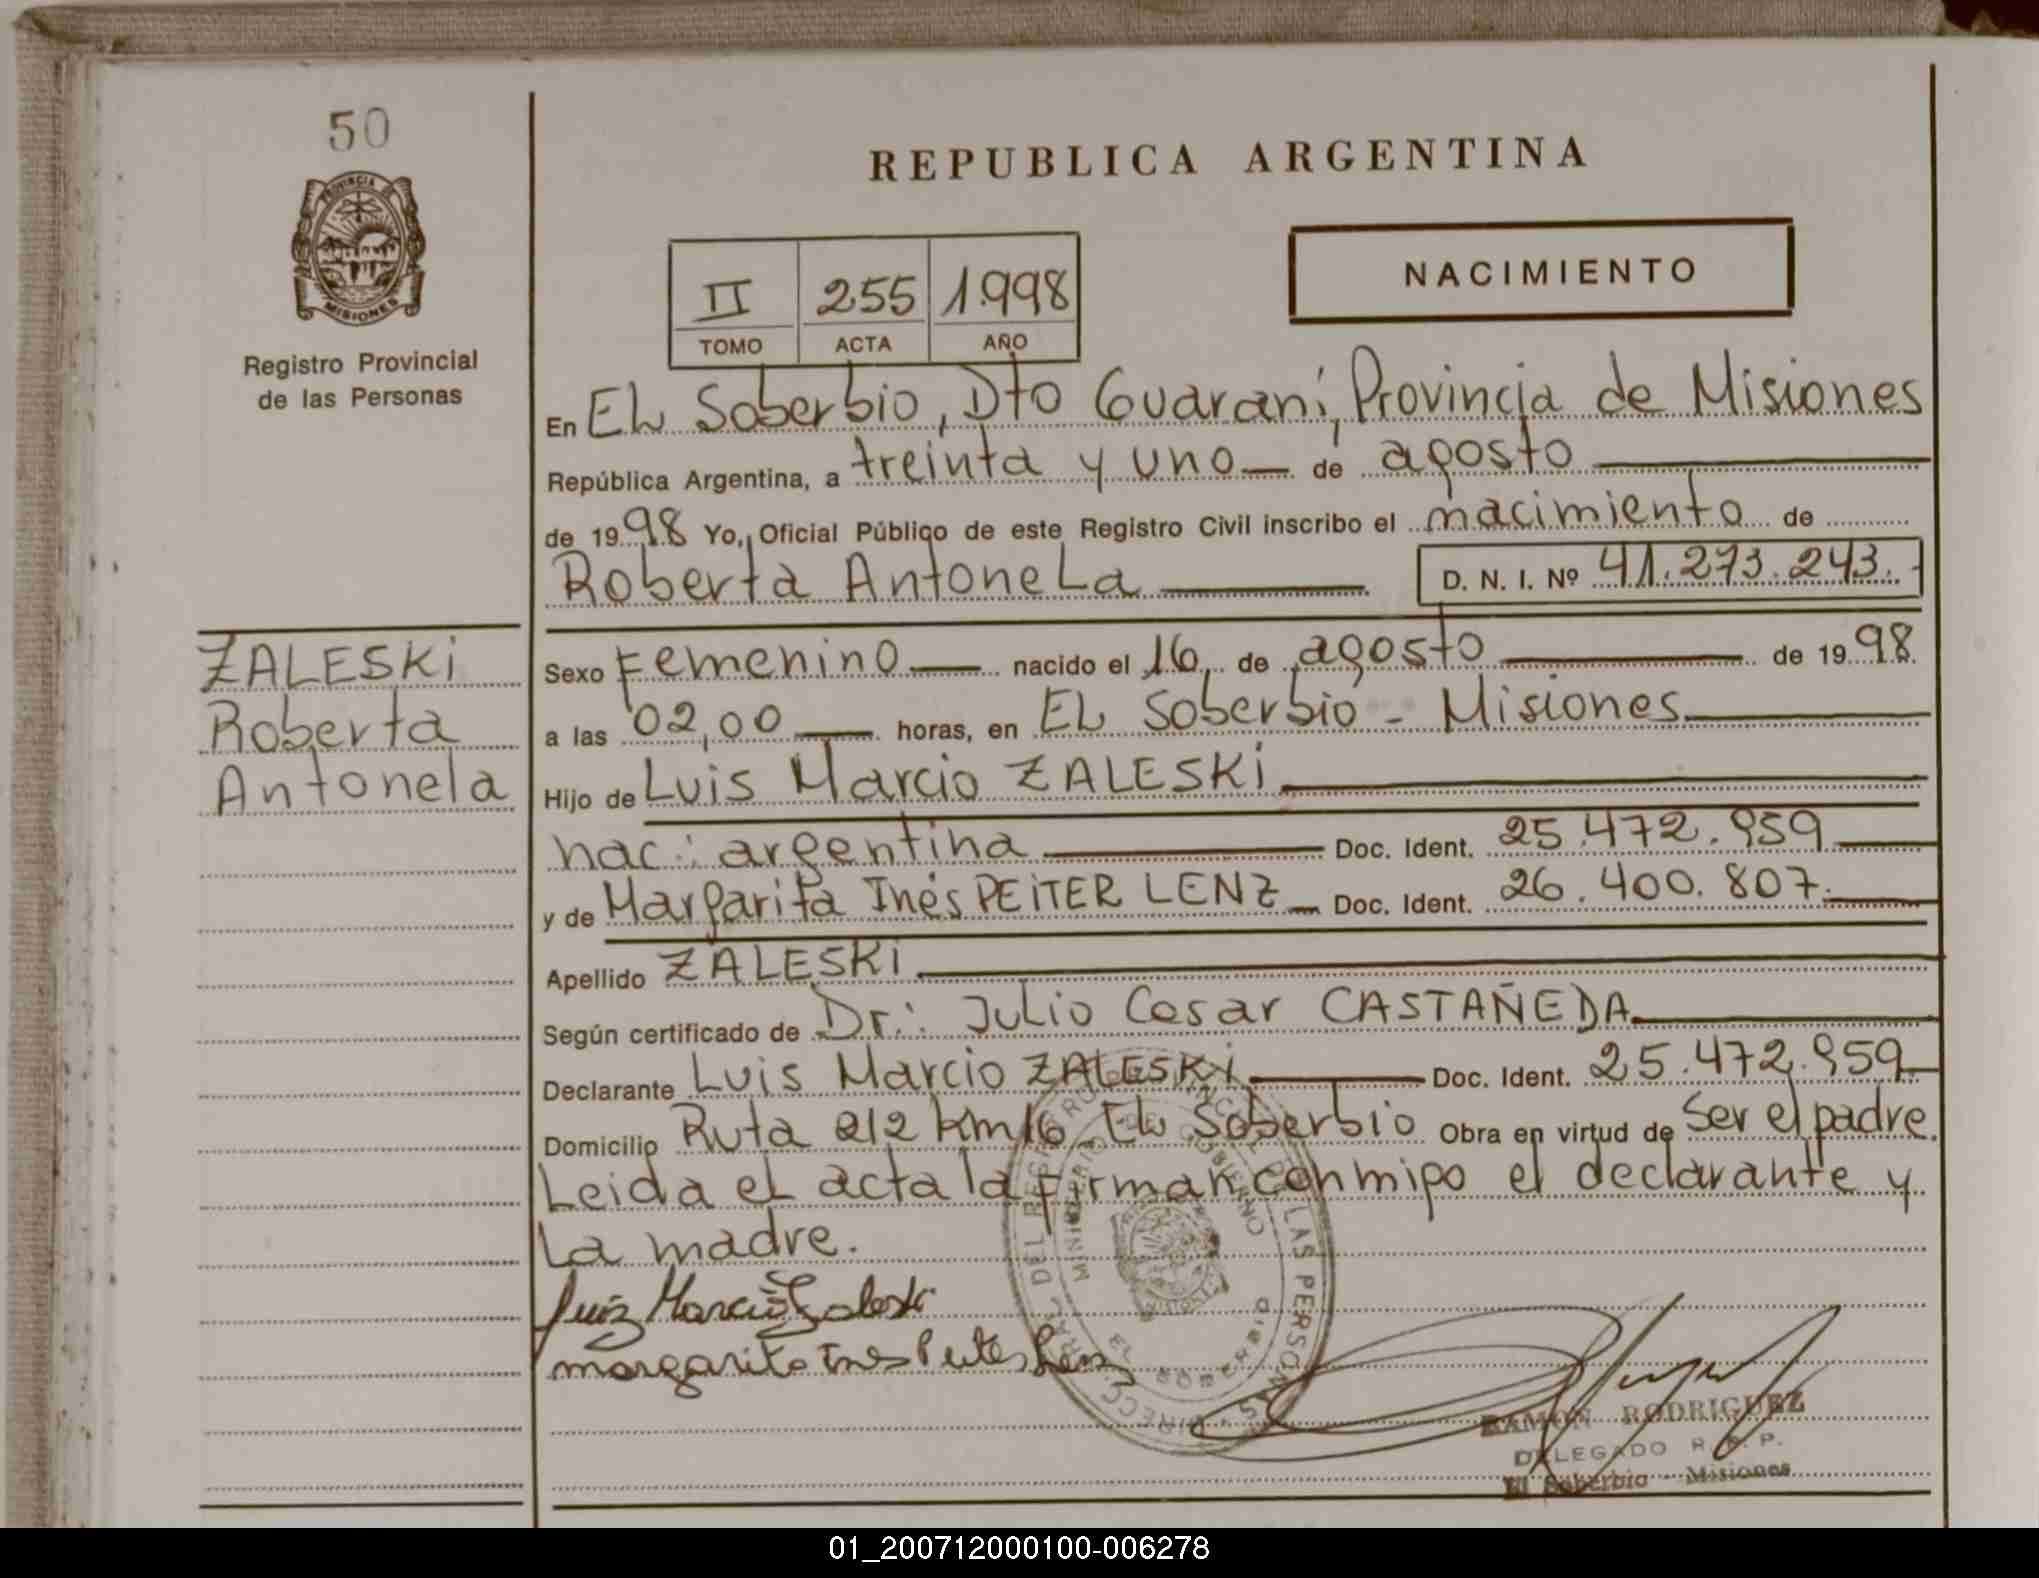 50
PROVINCIA DE
MISIONES
Registro Provincial
de las Personas
REPUBLICA ARGENTINA
II 255 1.998
TOMO ACTA AÑO
NACIMIENTO
En EL Soberbio, Dto Guaraní, Provincia de Misiones
República Argentina, a treinta y uno de agosto
de 1998 Yo, Oficial Público de este Registro Civil inscribo el nacimiento de
Roberta Antonela D. N. I. Nº 41.273.243.-
ZALESKi
Roberta
Antonela
Sexo Femenino nacido el 16 de agosto de 1998
a las 02,00 horas, en EL Soberbio - Misiones
Hijo de Luis Marcio ZALESKi
nac: argentina Doc. Ident. 25.472.959
y de Margarita Inés PEiTER LENZ Doc. Ident. 26.400.807.
Apellido ZALESKi
Según certificado de Dr.: Julio Cesar CASTAÑEDA
Declarante Luis Marcio ZALESKi Doc. Ident. 25.472.959
Domicilio Ruta 212 Km16 EL Soberbio Obra en virtud de Ser el padre.
Leida el acta la firman conmigo el declarante y
La madre.
Luiz Marcio Zaleski
margarita Ines Peiter Lenz
RAMON RODRIGUEZ
DELEGADO R. P. P.
El Soberbio - Misiones
01_200712000100-006278